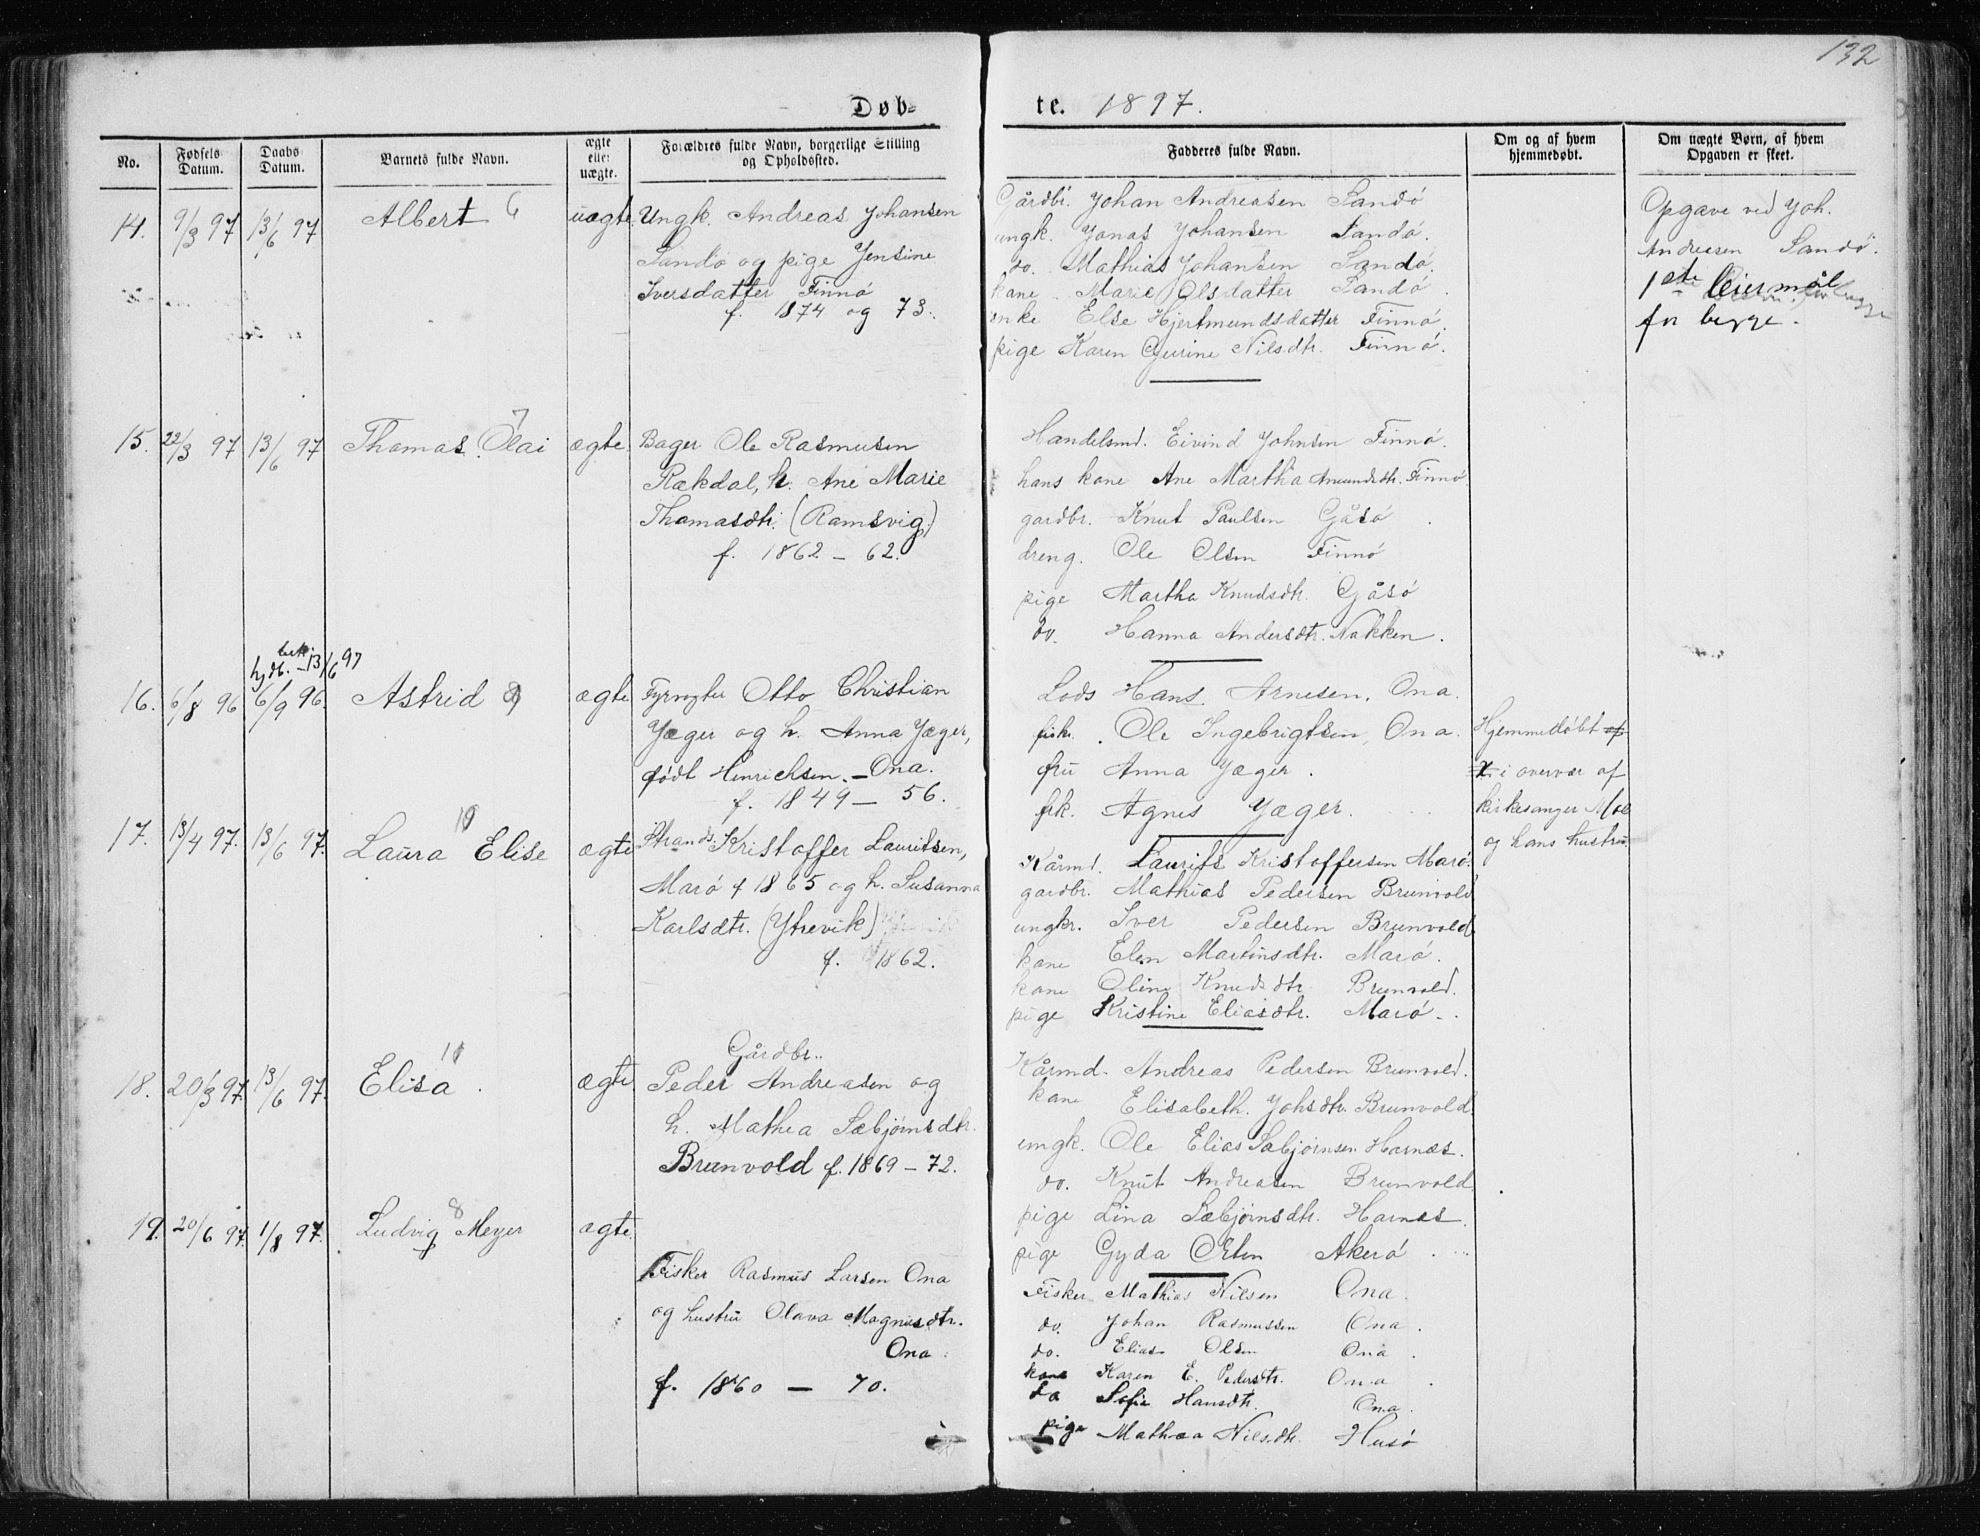 132
Døb-
te. 1897.
No.
Fødsels Datum.
Daabs Datum.
Barnets fulde Navn.
ægte eller uægte.
Forældres fulde Navn, borgerlige Stilling
og Opholdsted.
Fadderes fulde Navn.
Om og af hvem
hjemmedøbt.
Om uægte Børn, af hvem
Opgaven er skeet.
14. 9/3 97 13/6 97 Albert 6 uægte Ungk. Andreas Johansen
Sandø og pige Jensine
Iversdatter Finnø
f. 1874 og 73.
Gårdbr. Johan Andreasen Sandø
ungk. Jonas Johansen Sandø.
do. Mathias Johansen Sandø.
kane Marie Olsdatter Sandø.
enke Else Hjertmundsdatter Finnø.
pige Karen Gurine Nilsdtr. Finnø.
Opgave ved Joh.
Andreasen Sandø.
1ste leiermål
for begge.
15. 22/3 97 13/6 97 Thomas Olai 7 ægte Bager Ole Rasmusen
Rækdal, h. Ane Marie
Thomasdtr. (Ramsvig)
f. 1862 - 62.
Handelsmd. Eivind Johnsen Finnø.
hans kone Ane Martha Amundsdtr. Finnø
gardbr. Knut Paulsen Gåsø.
dreng. Ole Olsen Finnø
pige Martha Knudsdtr. Gåsø
do. Hanna Andersdtr. Nakken.
bek.
hjdb. - 13/6 97
16. 6/8 96 6/9 96. Astrid 9 ægte Fyrvogter Otto Christian
Yæger og h. Anna Yæger,
født Henrichsen. - Ona.
f. 1849 - 56.
Lods Hans Arnesen, Ona.
fisk. Ole Ingebrigtsen, Ona.
fru Anna Yæger.
frk. Agnes Yæger.
Hjemmedøbt af
i overvær af
kirkesanger Moe
og hans hustru.
17. 13/4 97. 13/6 97. Laura Elise 10 ægte Strands. Kristoffer Lauritsen,
Marø f 1865 og h. Susanna
Karlsdtr. (Ytrevik)
f. 1862.
Kårmd. Laurits Kristoffersen Marø.
gardbr. Mathias Pedersen Brunvold
ungkr. Iver Pedersen Brunvold
kane Elen Martinsdtr. Marø.
kane Oline Knudsdtr. Brunvold.
pige Kristine Eliasdtr. Marø.
18. 20/3 97. 13/6 97. Elisa 11 ægte. Gårdbr.
Peder Andreasen og
h. Mathea Sæbjørnsdtr.
Brunvold f. 1869 - 72.
Kårmd. Andreas Pedersen Brunvold.
kane Elisabeth Johsdtr. Brunvold
ungk. Ole Elias Sæbjørnsen Harnæs.
do. Knut Andreasen Brunvold
pige Lina Sæbjørnsdtr. Harnæs
pige Gyda Orten Akerø.
19. 20/6 97. 1/8 97. Ludvig Meyer 8 ægte.
Fisker Rasmus Larsen Ona
og hustru Olava Magnusdtr.
Ona.
f. 1860 - 70.
Fisker Mathias Nilsen Ona.
do. Johan Rasmussen Ona.
do. Elias Olsen Ona.
kane Karen E. Pedersdtr. Ona.
do Sofie Hansdtr. Ona.
pige Mathea Nilsdtr. Husø